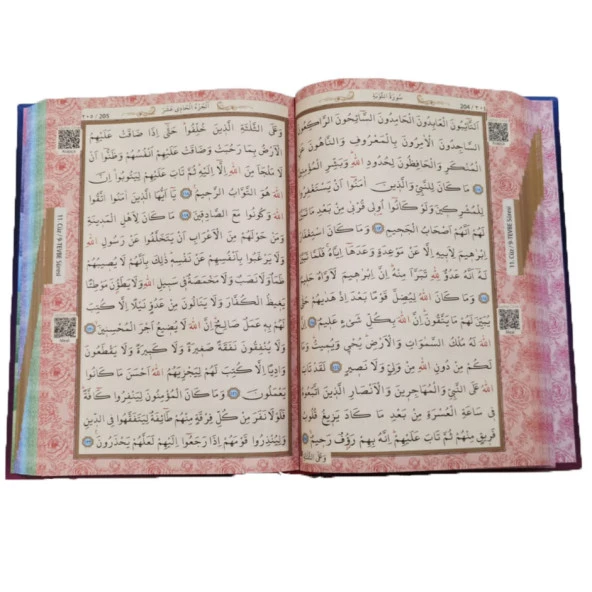 سُورَةُ التَّوْبَةِ
204 / ٢٠٤
اَلتَّائِبُونَ الْعَابِدُونَ الْحَامِدُونَ السَّائِحُونَ الرَّاكِعُونَ
السَّاجِدُونَ الْاٰمِرُونَ بِالْمَعْرُوفِ وَالنَّاهُونَ عَنِ
الْمُنْكَرِ وَالْحَافِظُونَ لِحُدُودِ اللّٰهِ وَبَشِّرِ الْمُؤْمِنِينَ
﴿١١٢﴾ مَا كَانَ لِلنَّبِيِّ وَالَّذِينَ اٰمَنُوا اَنْ يَسْتَغْفِرُوا
لِلْمُشْرِكِينَ وَلَوْ كَانُوا اُولِي قُرْبٰى مِنْ بَعْدِ مَا تَبَيَّنَ
لَهُمْ اَنَّهُمْ اَصْحَابُ الْجَحِيمِ ﴿١١٣﴾ وَمَا كَانَ اسْتِغْفَارُ
اِبْرٰهِيمَ لِاَبِيهِ اِلَّا عَنْ مَوْعِدَةٍ وَعَدَهَا اِيَّاهُ فَلَمَّا تَبَيَّنَ
لَهُ اَنَّهُ عَدُوٌّ لِلّٰهِ تَبَرَّاَ مِنْهُ اِنَّ اِبْرٰهِيمَ لَاَوَّاهٌ حَلِيمٌ
﴿١١٤﴾ وَمَا كَانَ اللّٰهُ لِيُضِلَّ قَوْمًا بَعْدَ اِذْ هَدٰيهُمْ حَتّٰى
يُبَيِّنَ لَهُمْ مَا يَتَّقُونَ اِنَّ اللّٰهَ بِكُلِّ شَيْءٍ عَلِيمٌ ﴿١١٥﴾ اِنَّ
اللّٰهَ لَهُ مُلْكُ السَّمٰوَاتِ وَالْاَرْضِ يُحْيِي وَيُمِيتُ وَمَا
لَكُمْ مِنْ دُونِ اللّٰهِ مِنْ وَلِيٍّ وَلَا نَصِيرٍ ﴿١١٦﴾ لَقَدْ تَابَ
اللّٰهُ عَلَى النَّبِيِّ وَالْمُهَاجِرِينَ وَالْاَنْصَارِ الَّذِينَ اتَّبَعُوهُ
فِي سَاعَةِ الْعُسْرَةِ مِنْ بَعْدِ مَا كَادَ يَزِيغُ قُلُوبُ
فَرِيقٍ مِنْهُمْ ثُمَّ تَابَ عَلَيْهِمْ اِنَّهُ بِهِمْ رَؤُفٌ رَحِيمٌ ﴿١١٧﴾
اَلْجُزْءُ الْحَادِي عَشَرَ
205 / ٢٠٥
وَعَلَى الثَّلٰثَةِ الَّذِينَ خُلِّفُوا حَتّٰى اِذَا ضَاقَتْ عَلَيْهِمُ
الْاَرْضُ بِمَا رَحُبَتْ وَضَاقَتْ عَلَيْهِمْ اَنْفُسُهُمْ وَظَنُّوا اَنْ
لَا مَلْجَاَ مِنَ اللّٰهِ اِلَّا اِلَيْهِ ثُمَّ تَابَ عَلَيْهِمْ لِيَتُوبُوا اِنَّ
اللّٰهَ هُوَ التَّوَّابُ الرَّحِيمُ ﴿١١٨﴾ يَا اَيُّهَا الَّذِينَ اٰمَنُوا اتَّقُوا
اللّٰهَ وَكُونُوا مَعَ الصَّادِقِينَ ﴿١١٩﴾ مَا كَانَ لِاَهْلِ الْمَدِينَةِ
وَمَنْ حَوْلَهُمْ مِنَ الْاَعْرَابِ اَنْ يَتَخَلَّفُوا عَنْ رَسُولِ اللّٰهِ
وَلَا يَرْغَبُوا بِاَنْفُسِهِمْ عَنْ نَفْسِهِ ذٰلِكَ بِاَنَّهُمْ لَا يُصِيبُهُمْ
ظَمَاٌ وَلَا نَصَبٌ وَلَا مَخْمَصَةٌ فِي سَبِيلِ اللّٰهِ وَلَا يَطَؤُنَ مَوْطِئًا
يَغِيظُ الْكُفَّارَ وَلَا يَنَالُونَ مِنْ عَدُوٍّ نَيْلًا اِلَّا كُتِبَ
لَهُمْ بِهِ عَمَلٌ صَالِحٌ اِنَّ اللّٰهَ لَا يُضِيعُ اَجْرَ الْمُحْسِنِينَ ﴿١٢٠﴾
وَلَا يُنْفِقُونَ نَفَقَةً صَغِيرَةً وَلَا كَبِيرَةً وَلَا يَقْطَعُونَ
وَادِيًا اِلَّا كُتِبَ لَهُمْ لِيَجْزِيَهُمُ اللّٰهُ اَحْسَنَ مَا كَانُوا
يَعْمَلُونَ ﴿١٢١﴾ وَمَا كَانَ الْمُؤْمِنُونَ لِيَنْفِرُوا كَافَّةً
فَلَوْلَا نَفَرَ مِنْ كُلِّ فِرْقَةٍ مِنْهُمْ طَائِفَةٌ لِيَتَفَقَّهُوا فِي الدِّينِ
وَلِيُنْذِرُوا قَوْمَهُمْ اِذَا رَجَعُوا اِلَيْهِمْ لَعَلَّهُمْ يَحْذَرُونَ ﴿١٢٢﴾
11. Cüz / 9-TEVBE Sûresi